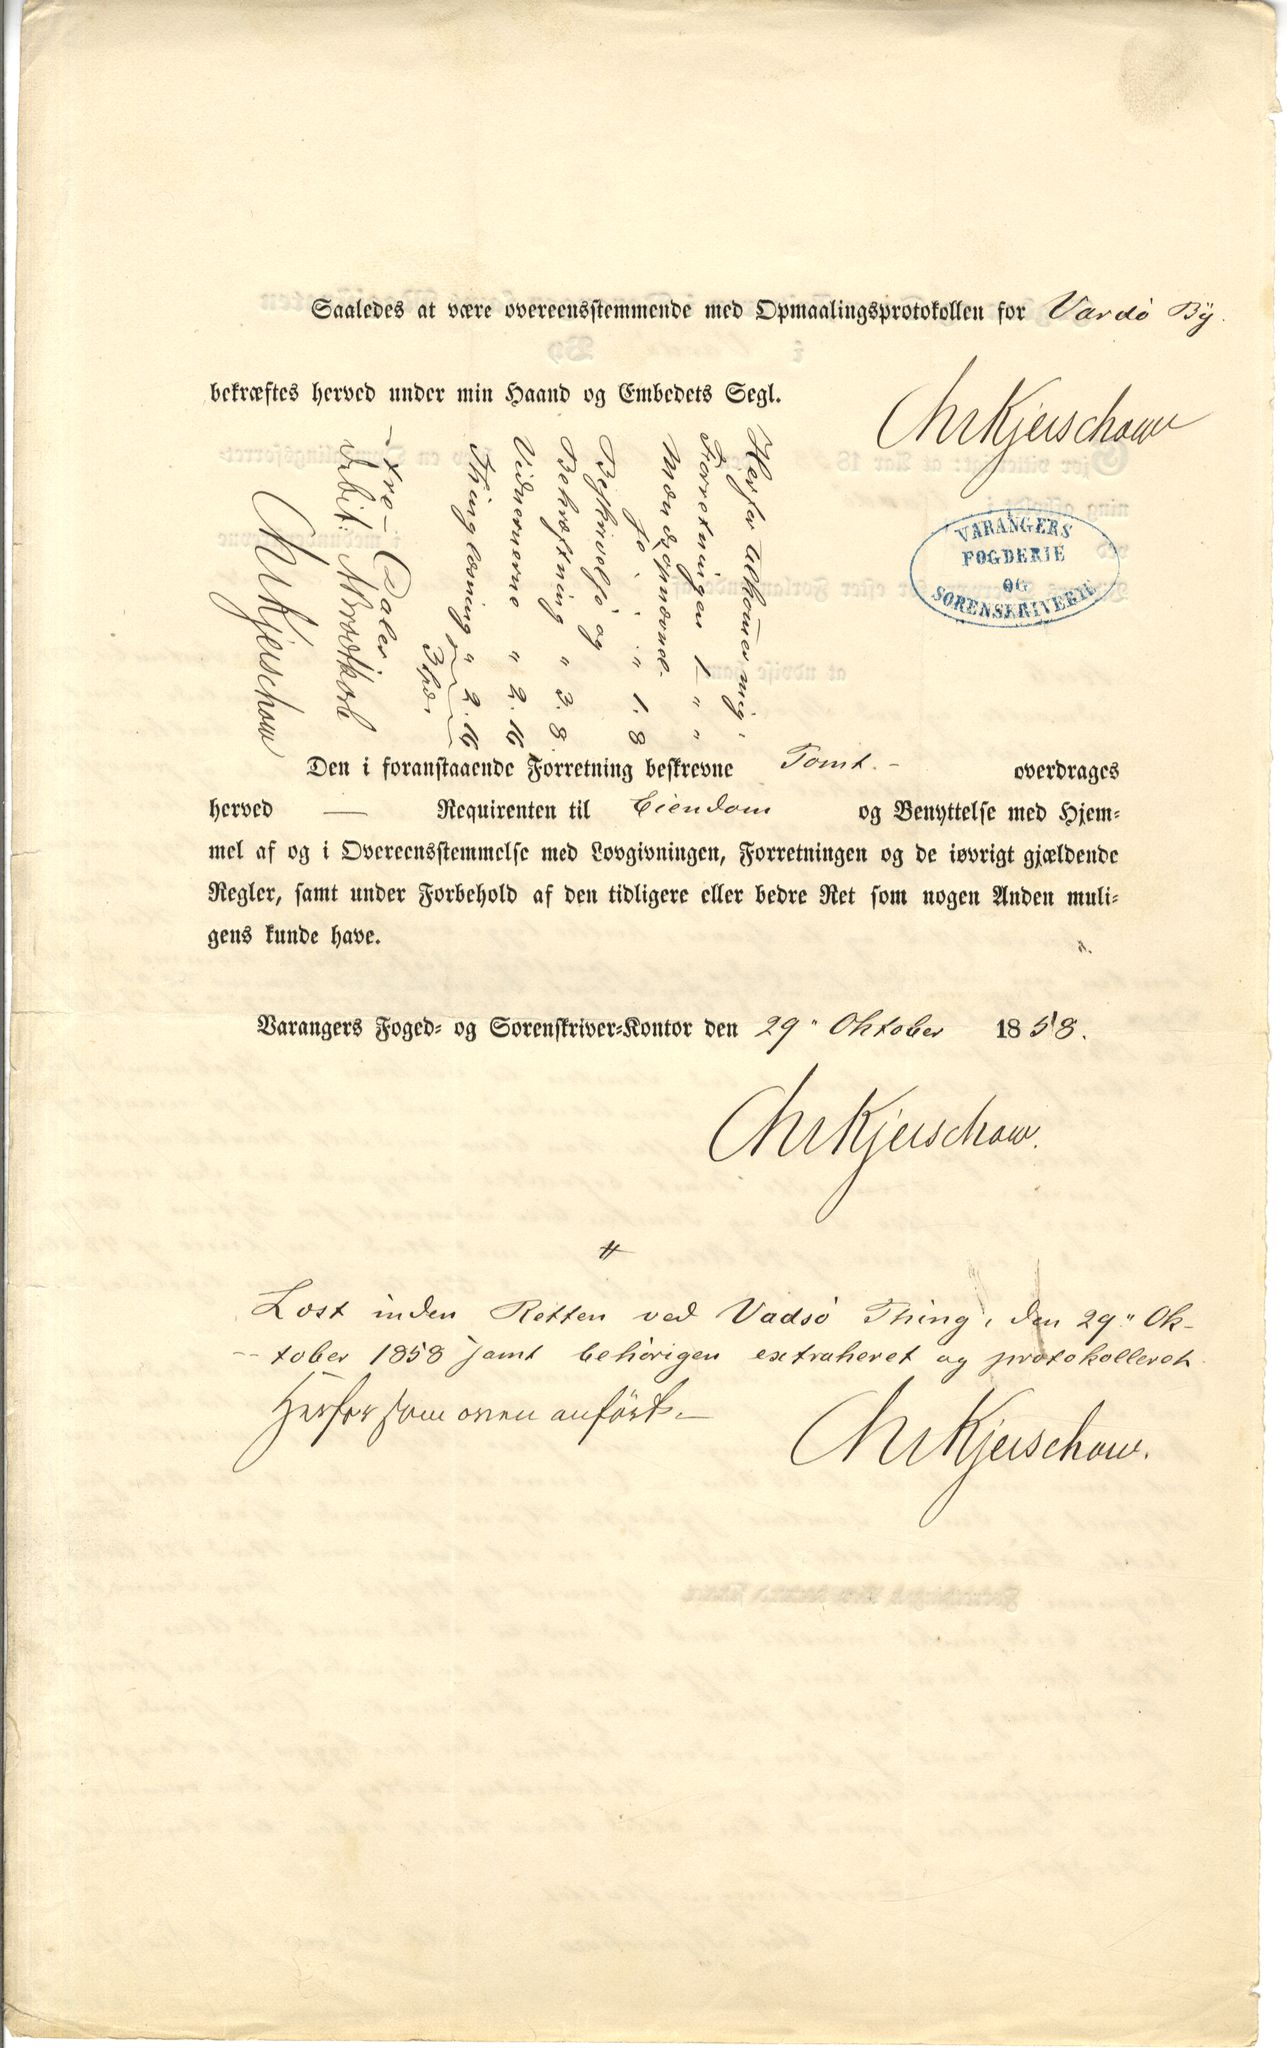 Saaledes at være overeensstemmende med Opmaalingsprotokollen for Vardö By.
bekræftes herved under min Haand og Embedets Segl.
Chr Kjerschow
VARANGERS
FOGDERIE
OG
SORENSKRIVERIE
Herfor tilkommer mig:
Forretningen 1 " "
Mændsopnævnel-
se " 1. 8
Beskrivelse og
Bekræftning " 3. 8
Vidnerne " 2. 16
Thinglæsning " 2. 16
3 Spd.
- tre - Daler
debit:
Chr Kjerschow
Den i foranstaaende Forretning beskrevne Tomt. - overdrages
herved — Requirenten til Eiendom og Benyttelse med Hjem-
mel af og i Overeensstemmelse med Lovgivningen, Forretningen og de iøvrigt gjældende
Regler, samt under Forbehold af den tidligere eller bedre Ret som nogen Anden muli-
gens kunde have.
Varangers Foged- og Sorenskriver-Kontor den 29" Oktober 1858.
Chr Kjerschow.
Læst inden Retten ved Vadsö Thing, den 29" Ok-
tober 1858 samt behörigen extraheret og protokolleret.
Herfor som oven anfört.-
Chr Kjerschow.